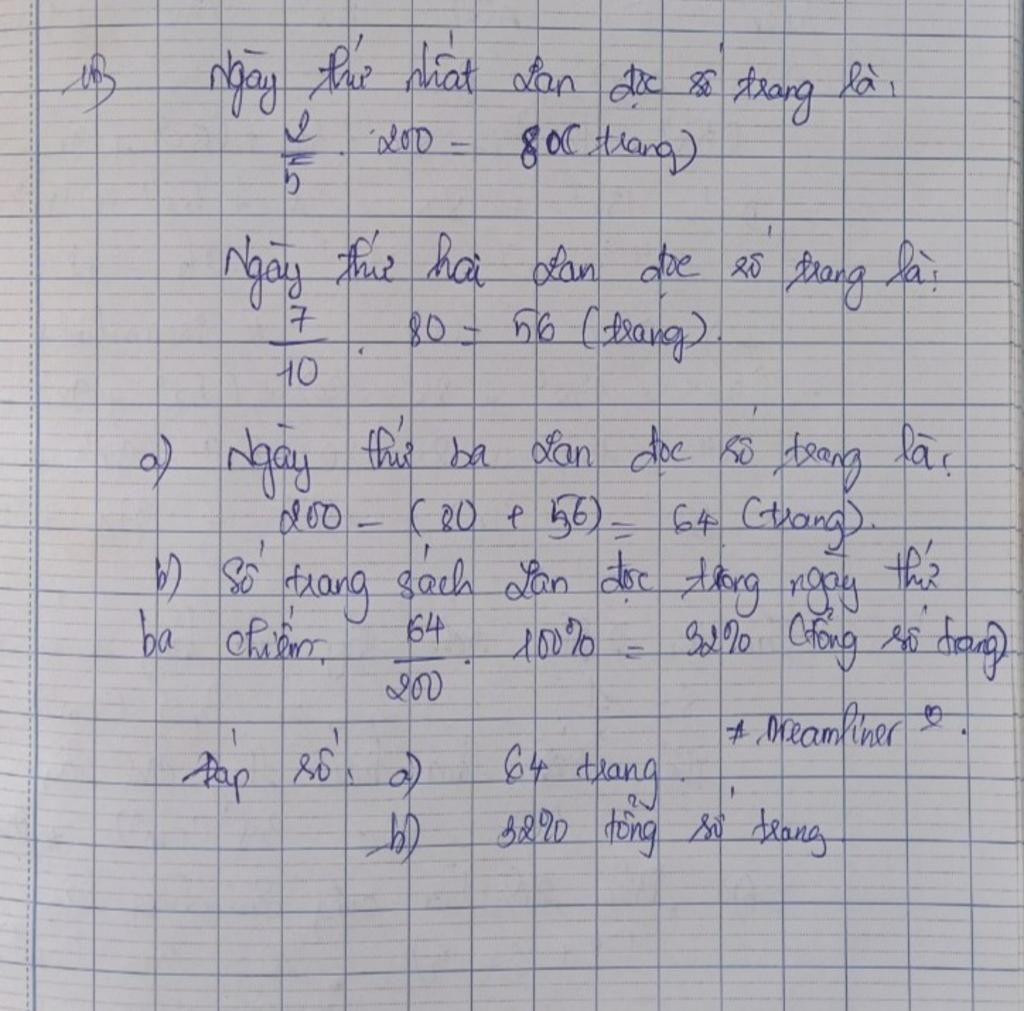 Ngày thứ nhất Lan đọc số trang là:
2/5 . 200 = 80 (trang)
Ngày thứ hai Lan đọc số trang là:
7/10 . 80 = 56 (trang).
a) Ngày thứ ba Lan đọc số trang là:
200 - (80 + 56) = 64 (trang).
b) Số trang sách Lan đọc trong ngày thứ
ba chiếm: 64/200 . 100% = 32% (tổng số trang)
* Dreamliner ♡.
Đáp số: a) 64 trang.
b) 32% tổng số trang